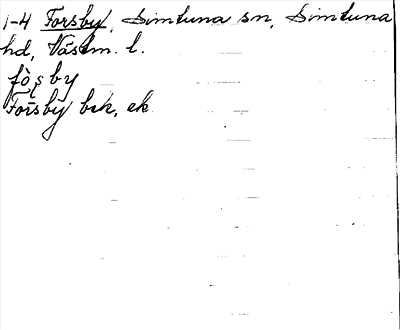 1-4 Forsby, Simtuna sn, Simtuna
hd, Västm. l.
fò̀s by
Forsby bek, ek